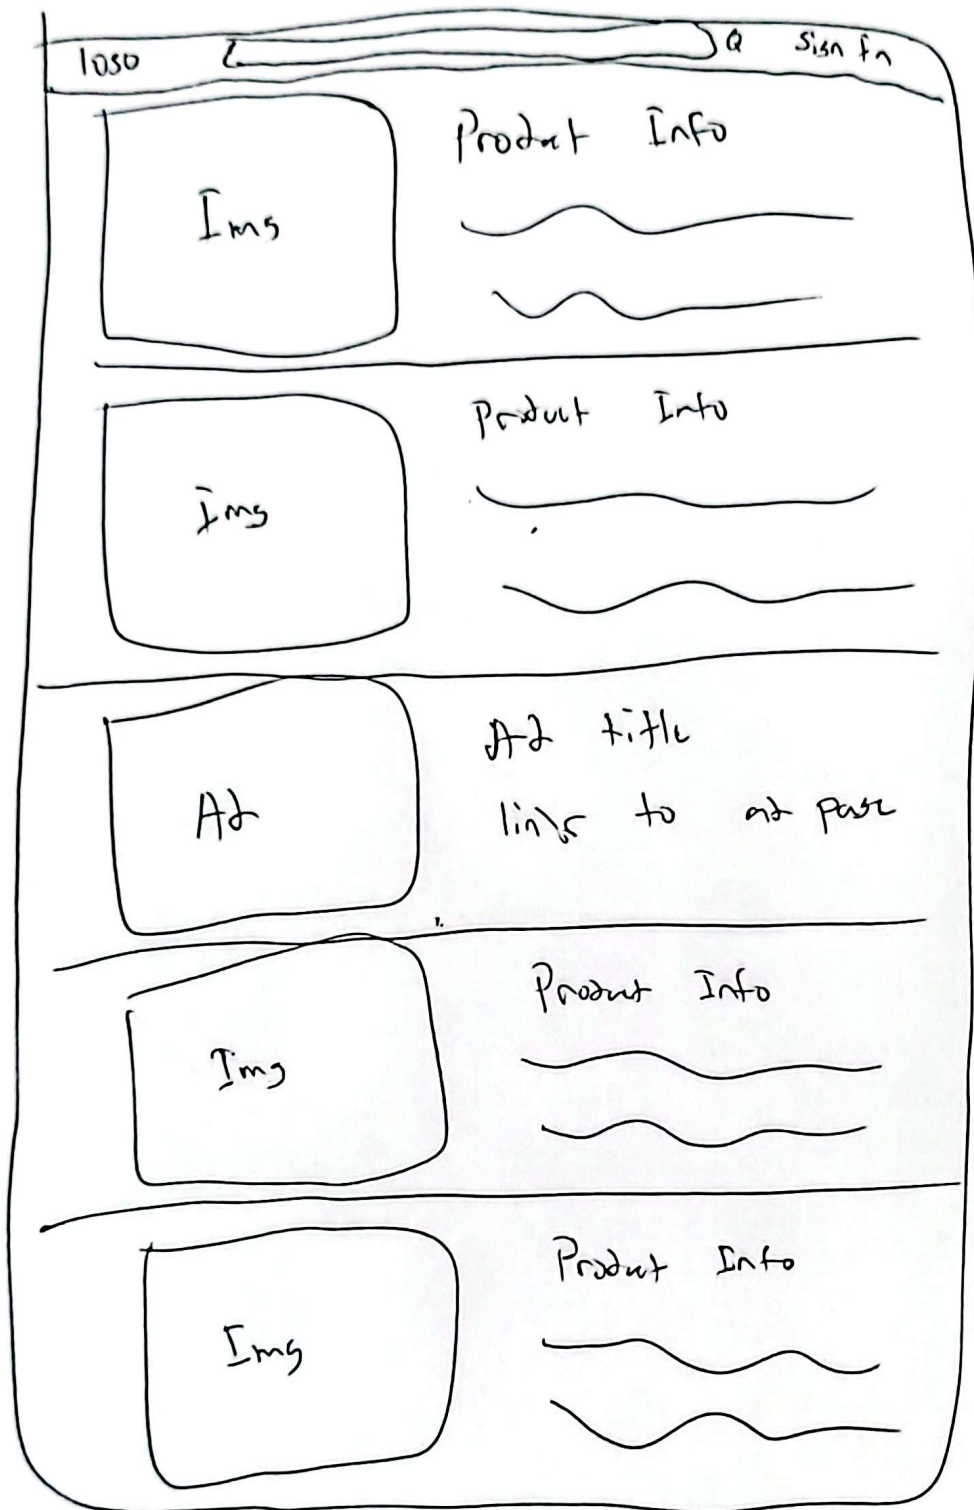 logo Q Sign In
Img
Product Info
Img
Product Info
Ad
Ad title
links to ad page
Img
Product Info
Img
Product Info